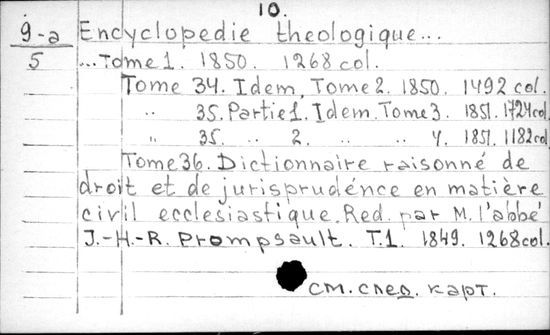 10.
9-a Encyclopedie theologique...
5 ...Tome 1. 1850. 1268 col.
Tome 34. Idem, Tome 2. 1850. 1492 col.
" 35. Partie 1. Idem. Tome 3. 1851. 1724 col.
" 35. " 2. " " 4. 1851. 1182 col.
Tome 36. Dictionnaire raisonné de
droit et de jurisprudénce en matière
civil ecclesiastique. Red. par M. l'abbé
J.-H.-R. Prompsault. T.1. 1849. 1268 col.
см. след. карт.